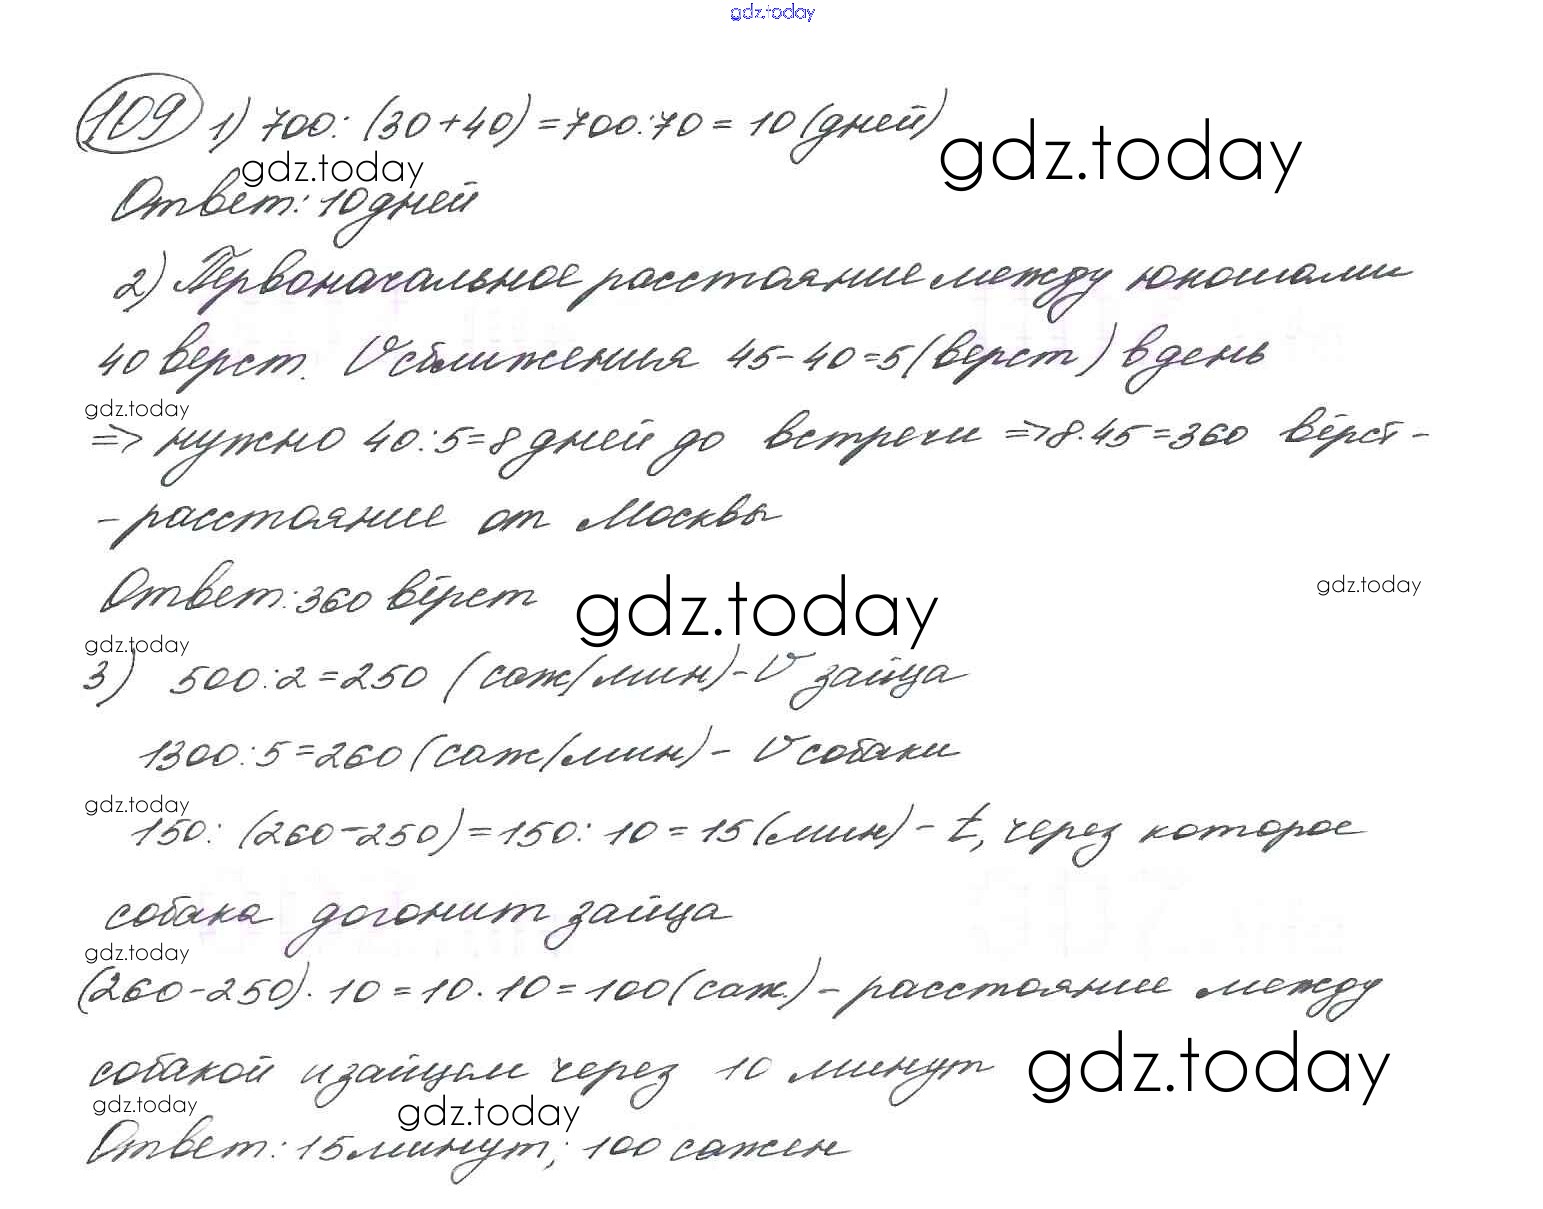 gdz.today
109 1) 700 : (30 + 40) = 700 : 70 = 10 (дней)
gdz.today
gdz.today
Ответ: 10 дней
2) Первоначальное расстояние между юношами
40 верст. V сближения 45 - 40 = 5 (верст) в день
gdz.today
=> нужно 40 : 5 = 8 дней до встречи => 8 · 45 = 360 вёрст -
- расстояние от Москвы
Ответ: 360 вёрст
gdz.today
gdz.today
gdz.today
3) 500 : 2 = 250 (саж/мин) - V зайца
1300 : 5 = 260 (саж/мин) - V собаки
gdz.today
150 : (260 - 250) = 150 : 10 = 15 (мин) - t, через которое
собака догонит зайца
gdz.today
(260 - 250) · 10 = 10 · 10 = 100 (саж.) - расстояние между
собакой и зайцем через 10 минут
gdz.today
gdz.today
gdz.today
Ответ: 15 минут; 100 сажен